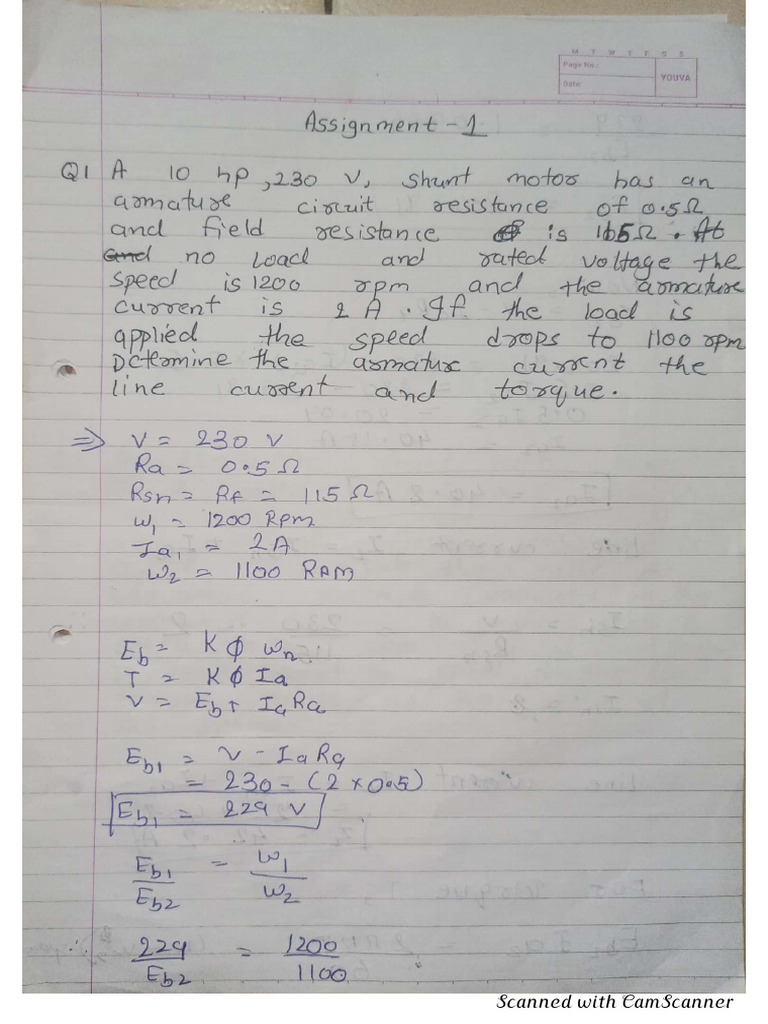 M T W T F S S
Page No.:
Date:
YOUVA
Assignment - 1
Q1 A 10 hp, 230 V, shunt motor has an
armature circuit resistance of 0.5Ω
and field resistance is 115Ω. At
and no load and rated voltage the
speed is 1200 rpm and the armature
current is 2 A. If the load is
applied the speed drops to 1100 rpm
Determine the armature current the
line current and torque.
⇒ V = 230 V
Ra = 0.5 Ω
Rsn = Rf = 115 Ω
W1 = 1200 RPm
Ia1 = 2A
W2 = 1100 RPM
Eb = K ϕ Wn
T = K ϕ Ia
V = Eb + Ia Ra
Eb1 = V - Ia Ra
= 230 - (2 × 0.5)
Eb1 = 229 V
Eb1/Eb2 = W1/W2
∴ 229/Eb2 = 1200/1100
Scanned with CamScanner